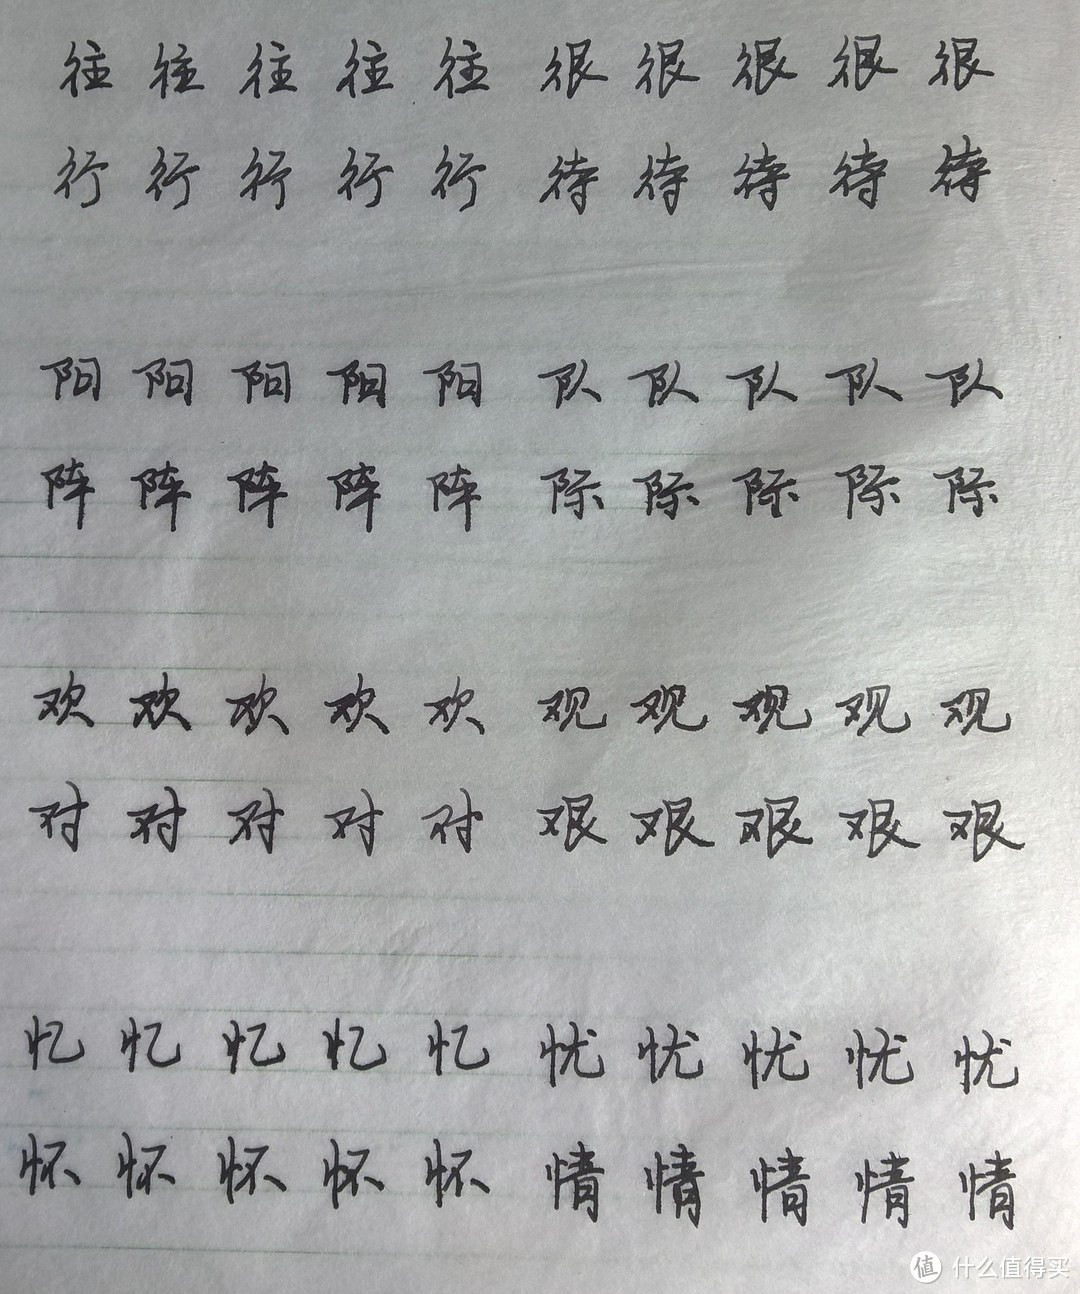 往往往往往很很很很很
行行行行行待待待待待
阳阳阳阳阳队队队队队
阵阵阵阵阵际际际际际
欢欢欢欢欢观观观观观
对对对对对艰艰艰艰艰
忆忆忆忆忆忧忧忧忧忧
怀怀怀怀怀情情情情情
值 什么值得买